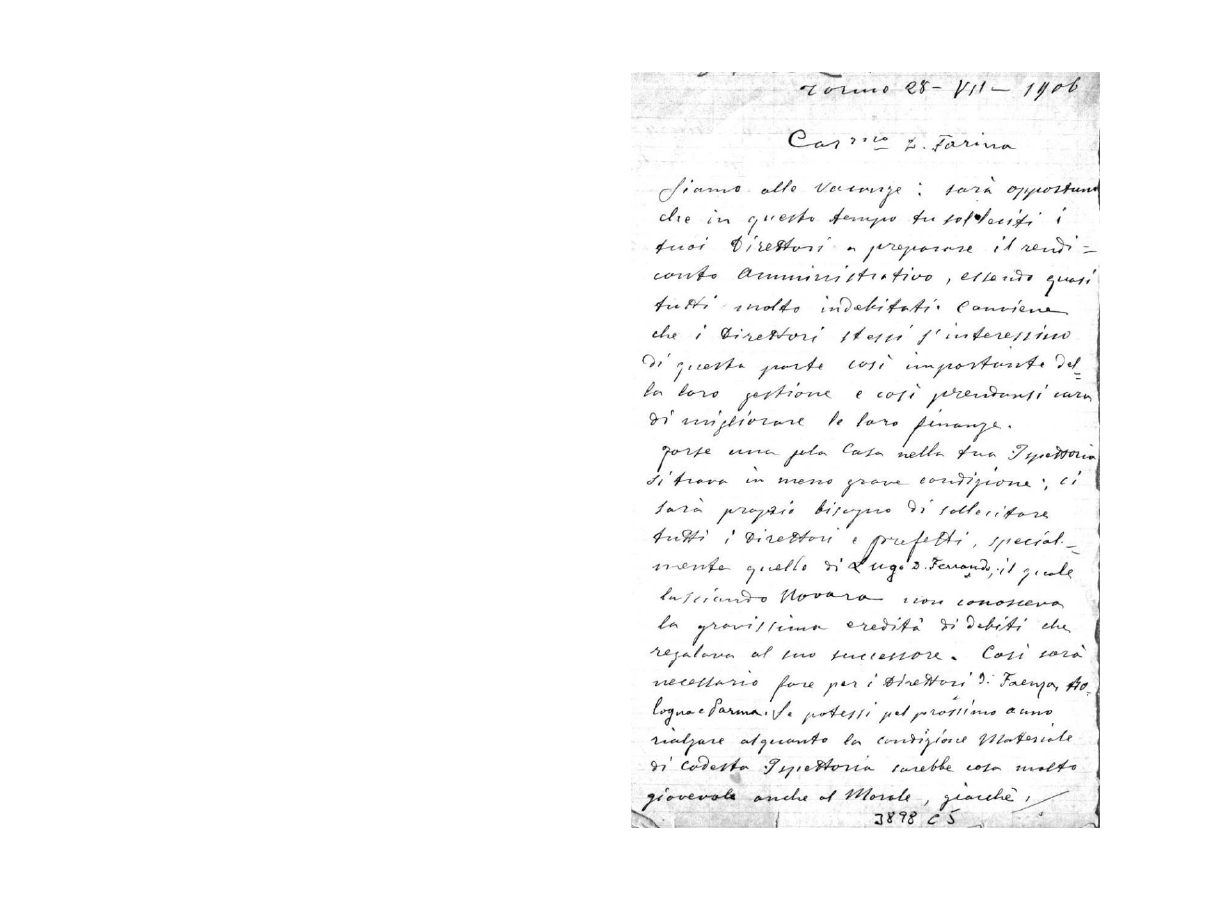 Torino 28- VII- 1906
Car mo D. Farina
Siamo alle vacanze : sarà opportuno
che in questo tempo tu solleciti i
tuoi Direttori a preparare il rendi=
conto Amministrativo, essendo quasi
tutti molto indebitati. Conviene
che i Direttori stessi s'interessino
di questa parte così importante del=
la loro gestione e così prendansi cura
di migliorare le loro finanze.
Forse una sola Casa nella tua Ispettoria
si trova in meno grave condizione ; ci
sarà proprio bisogno di sollecitare
tutti i Direttori e prefetti, special=
mente quello di Lugo D. Ferrando, il quale
lasciando Novara non conosceva
la gravissima eredità di debiti che
regalava al suo successore. Così sarà
necessario fare per i Direttori di Faenza, Bo-
logna e Parma. Se potessi pel prossimo anno
rialzare alquanto la condizione Materiale
di codesta Ispettoria sarebbe cosa molto
giovevole anche al Morale, giacchè,
3898 C5